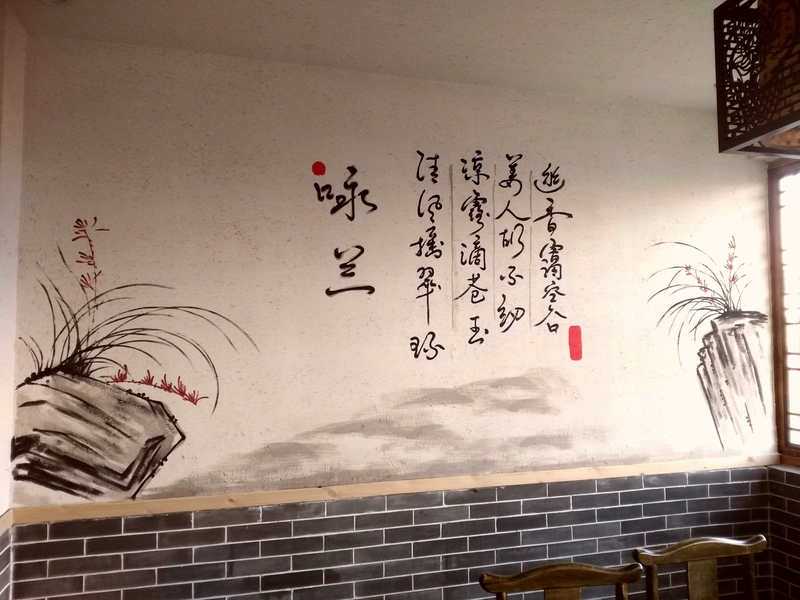 咏兰
清风摇翠环
凉露滴苍玉
美人胡不纫
幽香霭空谷